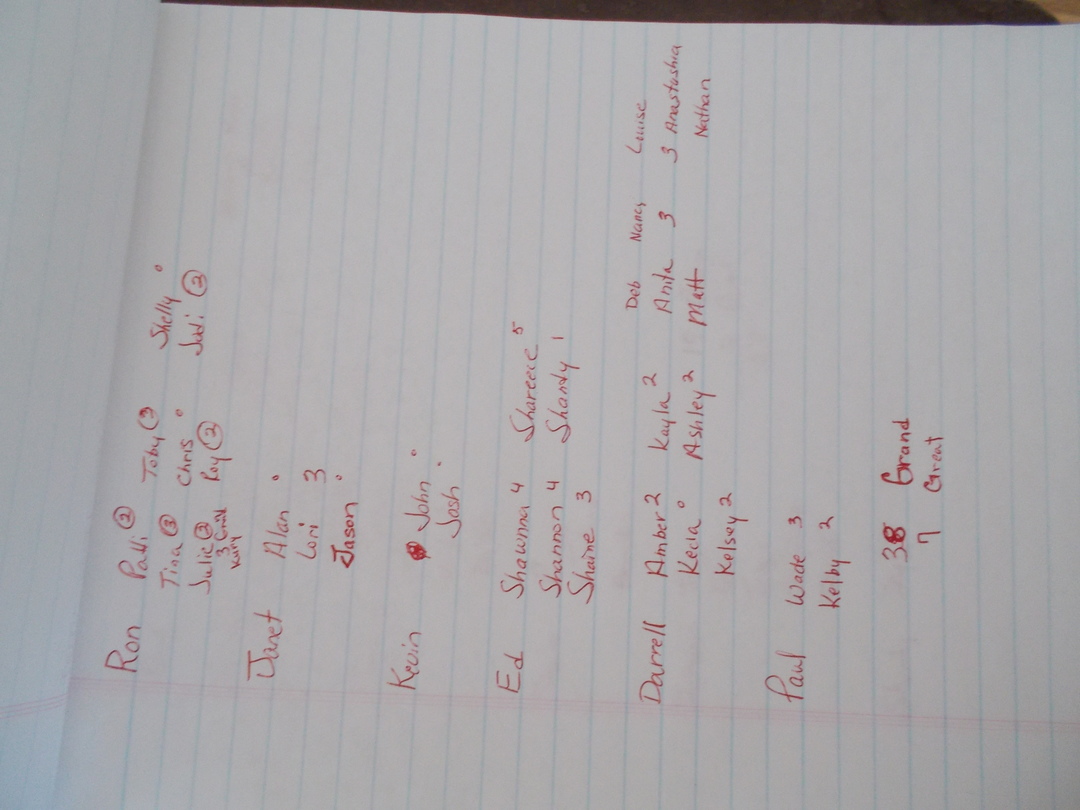 Ron Patti ② Toby ③ Shelly °
Tina ③ Chris ° Judi ②
Julie ② Roy ②
3 Great
Janet Alan °
Lori 3
Jason °
Kevin John °
Josh °
Ed Shawnna 4 Shareece 5
Shannon 4 Shandy 1
Shaine 3
Deb Nancy Louise
Darrell Amber 2 Kayla 2 Anita 3 3 Anastashia
Kecia ° Ashley 2 Matt Nathan
Kelsey 2
Paul Wade 3
Kelby 2
38 Grand
7 Great